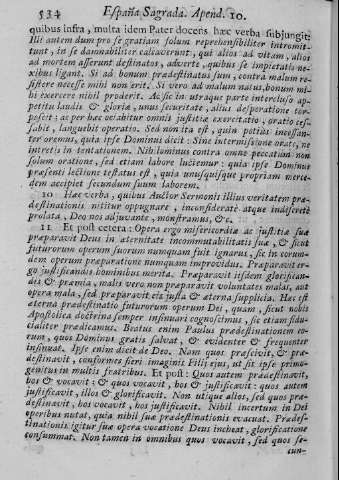 534 España Sagrada. Apend. 10.
quibus infra, multa idem Pater docens hæc verba subjungit:
Illi autem dum pro se gratiam solum reprehensibiliter intromit-
tunt, in se damnabiliter calvacirunt, qui alios ad vitam, alios
ad mortem asserunt destinatos, adverte, quibus se impietatis ne-
xibus ligant. Si ad bonum prædestinatus sum, contra malum re-
sistere necesse mihi non erit. Si vero ad malum natus, bonum mi-
hi exercere nihil proderit. Ac sic in utraque parte intercluso ap-
petitu laudis & gloriæ, unus securitate, alius desperatione tor-
pescit: ac per hæc velabitur omnis justitiæ exercitatio, oratio ces-
sabit, languebit operatio. Sed non ita est, quin potius incessan-
ter oremus, quia ipse Dominus dicit: Sine intermissione orate, ne
intretis in tentationem. Nihilominus contra omne peccatum non
solum oratione, sed etiam labore luctemur: quia ipse Dominus
præsenti lectione testatus est, quia unusquisque propriam merce-
dem accipiet secundum suum laborem.
10 Hæc verba, quibus Auctor Sermonis illius veritatem præ-
destinationis nititur oppugnare, inconsiderate atque indiscrete
prolata, Deo nos adjuvante, monstramus, &c.
11 Et post cetera: Opera ergo misericordiæ ac justitiæ suæ
præparavit Deus in æternitate incommutabilitatis suæ, & sicut
futurorum operum suorum numquam fuit ignarus, sic in eorum-
dem operum præparatione numquam improvidus. Præparavit er-
go justificandis hominibus merita. Præparavit iisdem glorifican-
dis & præmia, malis vero non præparavit voluntates malas, aut
opera mala, sed præparavit eis justa & æterna supplicia. Hæc est
æterna prædestinatio futurorum operum Dei, quam, sicut nobis
Apostolica doctrina semper insinuari cognoscimus, sic etiam fidu-
cialiter prædicamus. Beatus enim Paulus prædestinationem eo-
rum, quos Dominus gratis salvat, & evidenter & frequenter
insinuat. Ipse enim dicit de Deo. Nam quos præscivit, & præ-
destinavit, conformes fieri imaginis Filii ejus, ut sit ipse primo-
genitus in multis fratribus. Et post: Quos autem prædestinavit,
hos & vocavit: & quos vocavit, hos & justificavit: quos autem
justificavit, illos & glorificavit. Non utique alios, sed quos præ-
destinavit, hos vocavit, hos justificavit. Nihil incertum in Dei
operibus nutat, quia nihil suæ prædestinationis evacuat. Prædes-
tinationis igitur suæ opera vocatione Deus incheat, glorificatione
consummat. Non tamen in omnibus quos vocavit, sed quos se-
cun-